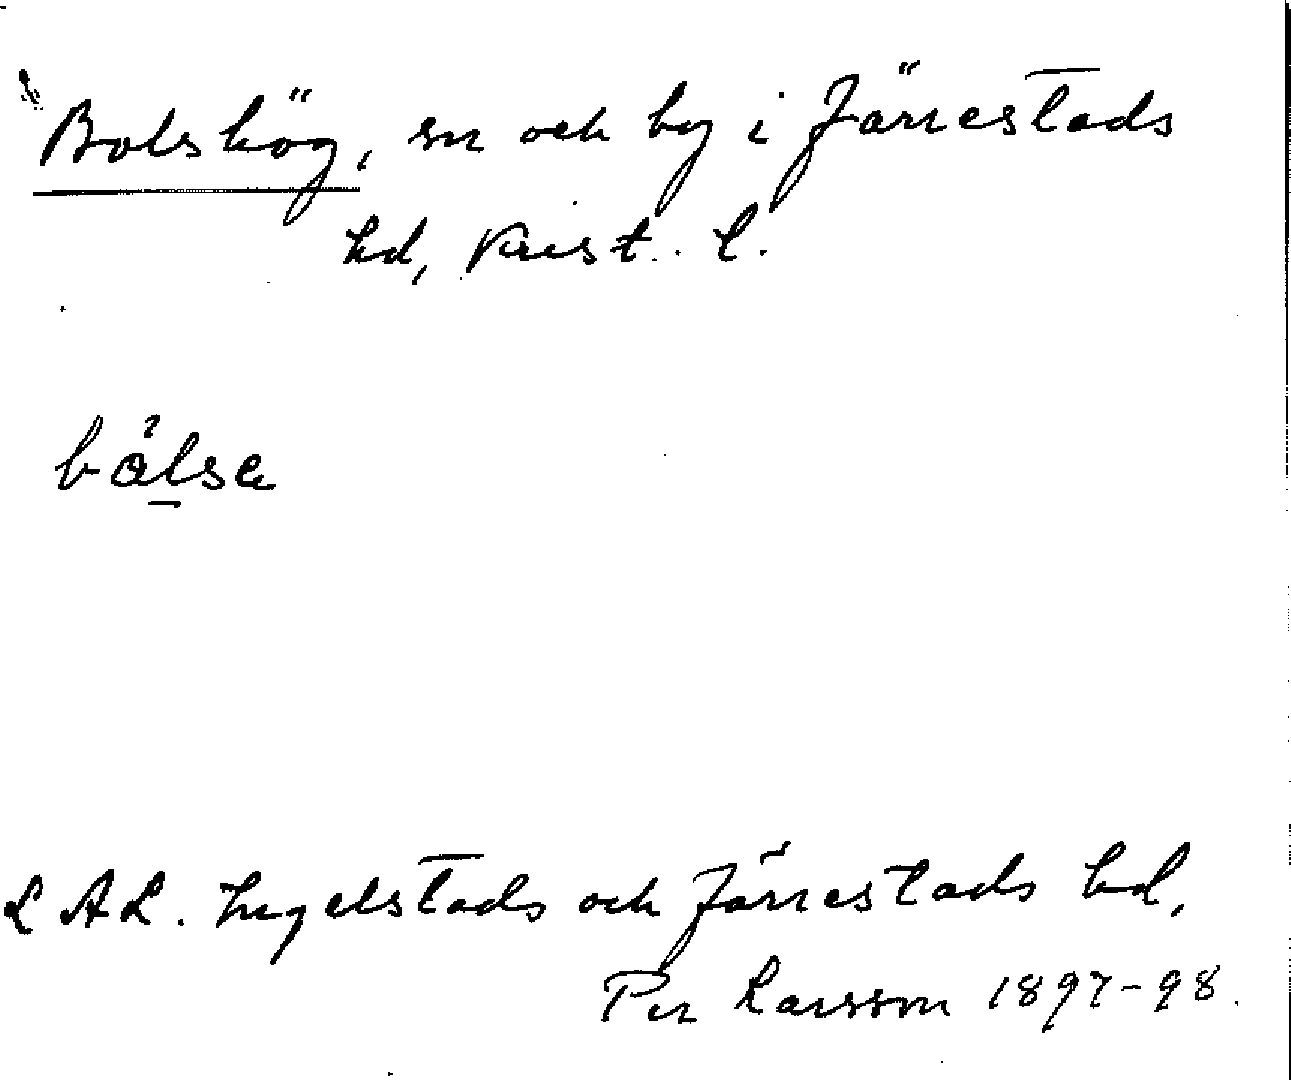 Bolshög, sn och by i Järrestads
hd, Krist. l.
bålsa
LAL. Ingelstads och Järrestads hd,
Per Larsson 1897-98.